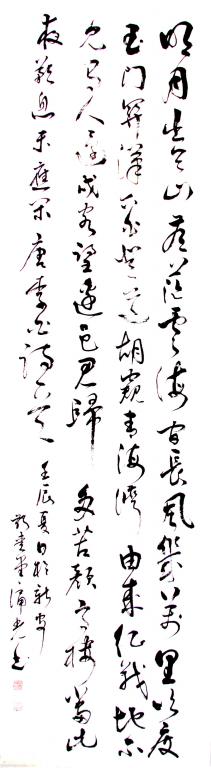 明月出天山蒼茫雲海間長風幾萬里吹度
玉門關漢下白登道胡窺青海灣由來征戰地不
見有人還戍客望邊邑思歸多苦顏高樓當此
夜歎息未應閑唐李白詩一首
壬辰夏日於新安